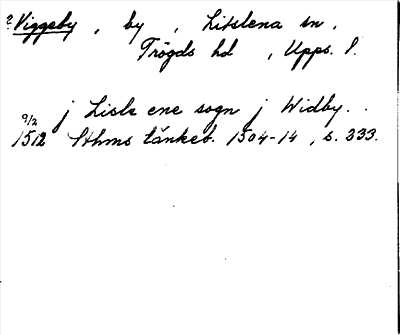 ? Viggeby, by, Litslena sn,
Trögds hd, Upps. l.
j Lisle ene sogn j Widby..
9/2
1512 Sthms tänkeb. 1504-14, s. 333.